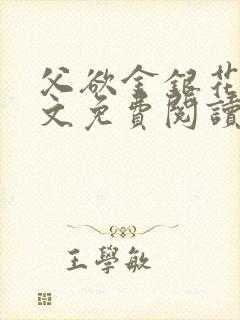 父欲金銀花
文免費閱讀
王學敏